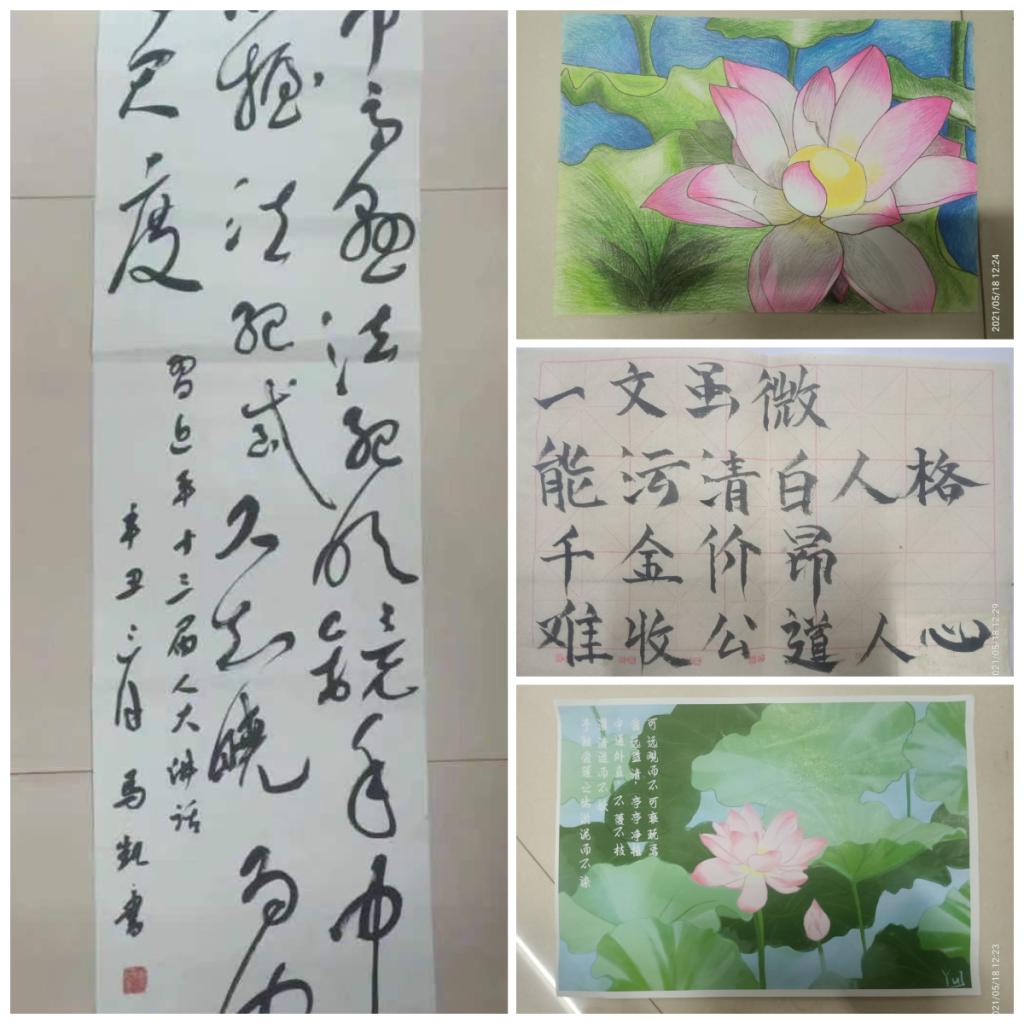 中高悬法纪明镜手中
握法纪戒尺知晓为
尺度
習近平十三届人大讲话
辛丑三月 马凯书
2021/05/18 12:24
一文虽微
能污清白人格
千金价昂
难收公道人心
021/05/18 12:29
可远观而不可亵玩焉
香远益清，亭亭净植
中通外直，不蔓不枝
濯清涟而不妖
予独爱莲之出淤泥而不染
Yul
021/05/18 12:23